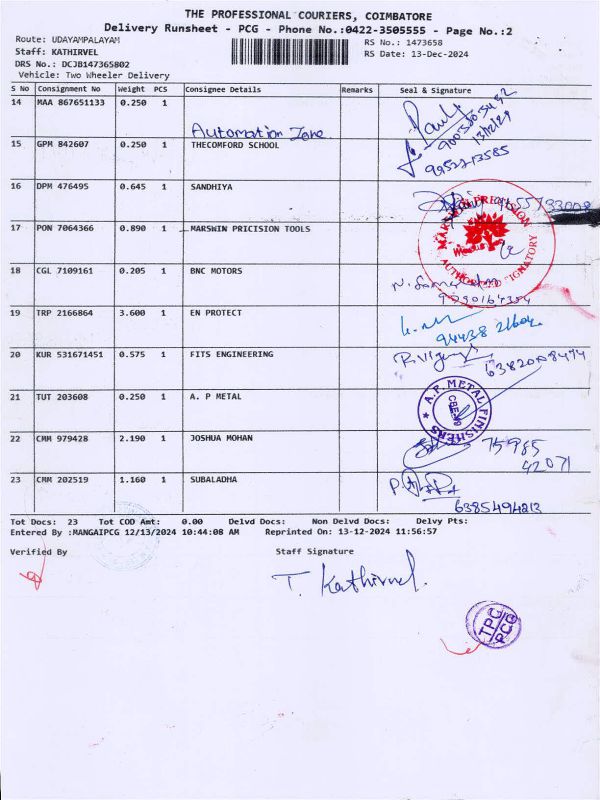 THE PROFESSIONAL COURIERS, COIMBATORE
Delivery Runsheet - PCG - Phone No.:0422-3505555 - Page No.:2
Route: UDAYAMPALAYAM
RS No.: 1473658
Staff: KATHIRVEL
RS Date: 13-Dec-2024
DRS No.: DCJB147365802
Vehicle: Two Wheeler Delivery
S No Consignment No Weight PCS Consignee Details Remarks Seal & Signature
14 MAA 867651133 0.250 1
Automation Zone
15 GPM 842607 0.250 1 THECOMFORD SCHOOL
9952713585
16 DPM 476495 0.645 1 SANDHIYA
17 PON 7064366 0.890 1 MARSWIN PRICISION TOOLS
MARSWIN PRECISION
AUTHORISED SIGNATORY
18 CGL 7109161 0.205 1 BNC MOTORS
19 TRP 2166864 3.600 1 EN PROTECT
94438 21604
20 KUR 531671451 0.575 1 FITS ENGINEERING
21 TUT 203608 0.250 1 A. P METAL
A.P. METAL FINISHERS
22 CMM 979428 2.190 1 JOSHUA MOHAN
75985
42071
23 CMM 202519 1.160 1 SUBALADHA
6385494213
Tot Docs: 23 Tot COD Amt: 0.00 Delvd Docs: Non Delvd Docs: Delvy Pts:
Entered By :MANGAIPCG 12/13/2024 10:44:08 AM Reprinted On: 13-12-2024 11:56:57
Verified By Staff Signature
T. Kathirvel.
TPC
PCG